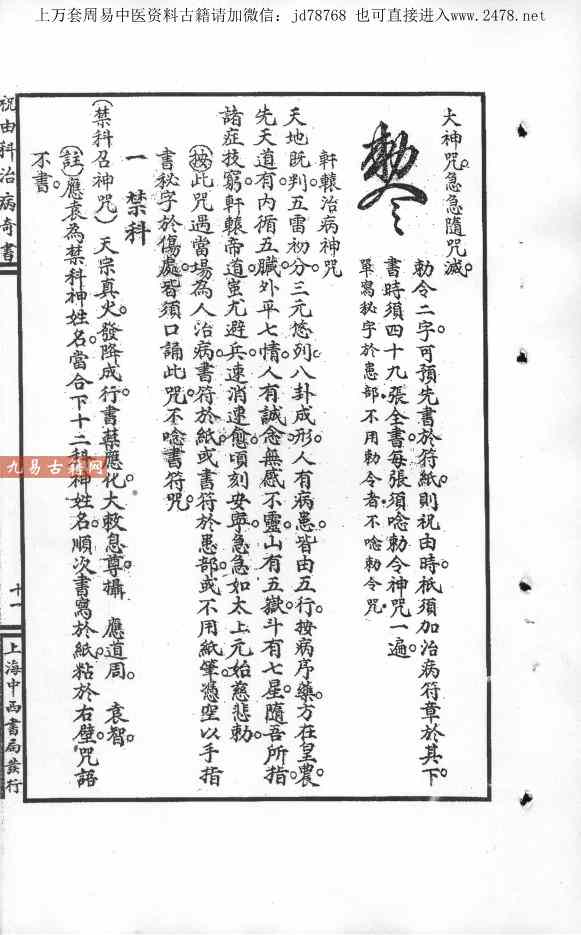 上万套周易中医资料古籍请加微信：jd78768 也可直接进入www.2478.net
大神咒。急急隨咒滅。
勅令
勅令二字。可預先書於符紙。則祝由時。祇須加治病符章於其下。
書時須四十九張全書。每張須唸勅令神咒一遍。
單寫秘字於患部。不用勅令者。不唸勅令咒。
軒轅治病神咒
天地既判。五雷初分。三元悠列。八卦成形。人有病患。皆由五行。按病序藥。方在皇農。
先天道有。內循五臟。外平七情。人有誠念。無感不靈。山有五嶽。斗有七星。隨吾所指。
諸症技窮。軒轅帝道。蚩尤避兵。速消速愈。頃刻安寧。急急如太上元始慈悲勅。
（按）此咒遇當場為人治病。書符於紙。或書符於患部。或不用紙筆。憑空以手指
書秘字於傷處。皆須口誦此咒。不唸書符咒。
一 禁科
（禁科召神咒） 天宗真火。發降成行。書禁應化。大敕息尊攝 應道周 袁智。
（註）應袁為禁科神姓名。當合下十二科神姓名。順次書寫於紙。粘於右壁。咒語
不書。
祝由科治病奇書
十一
上海中西書局發行
九易古籍网